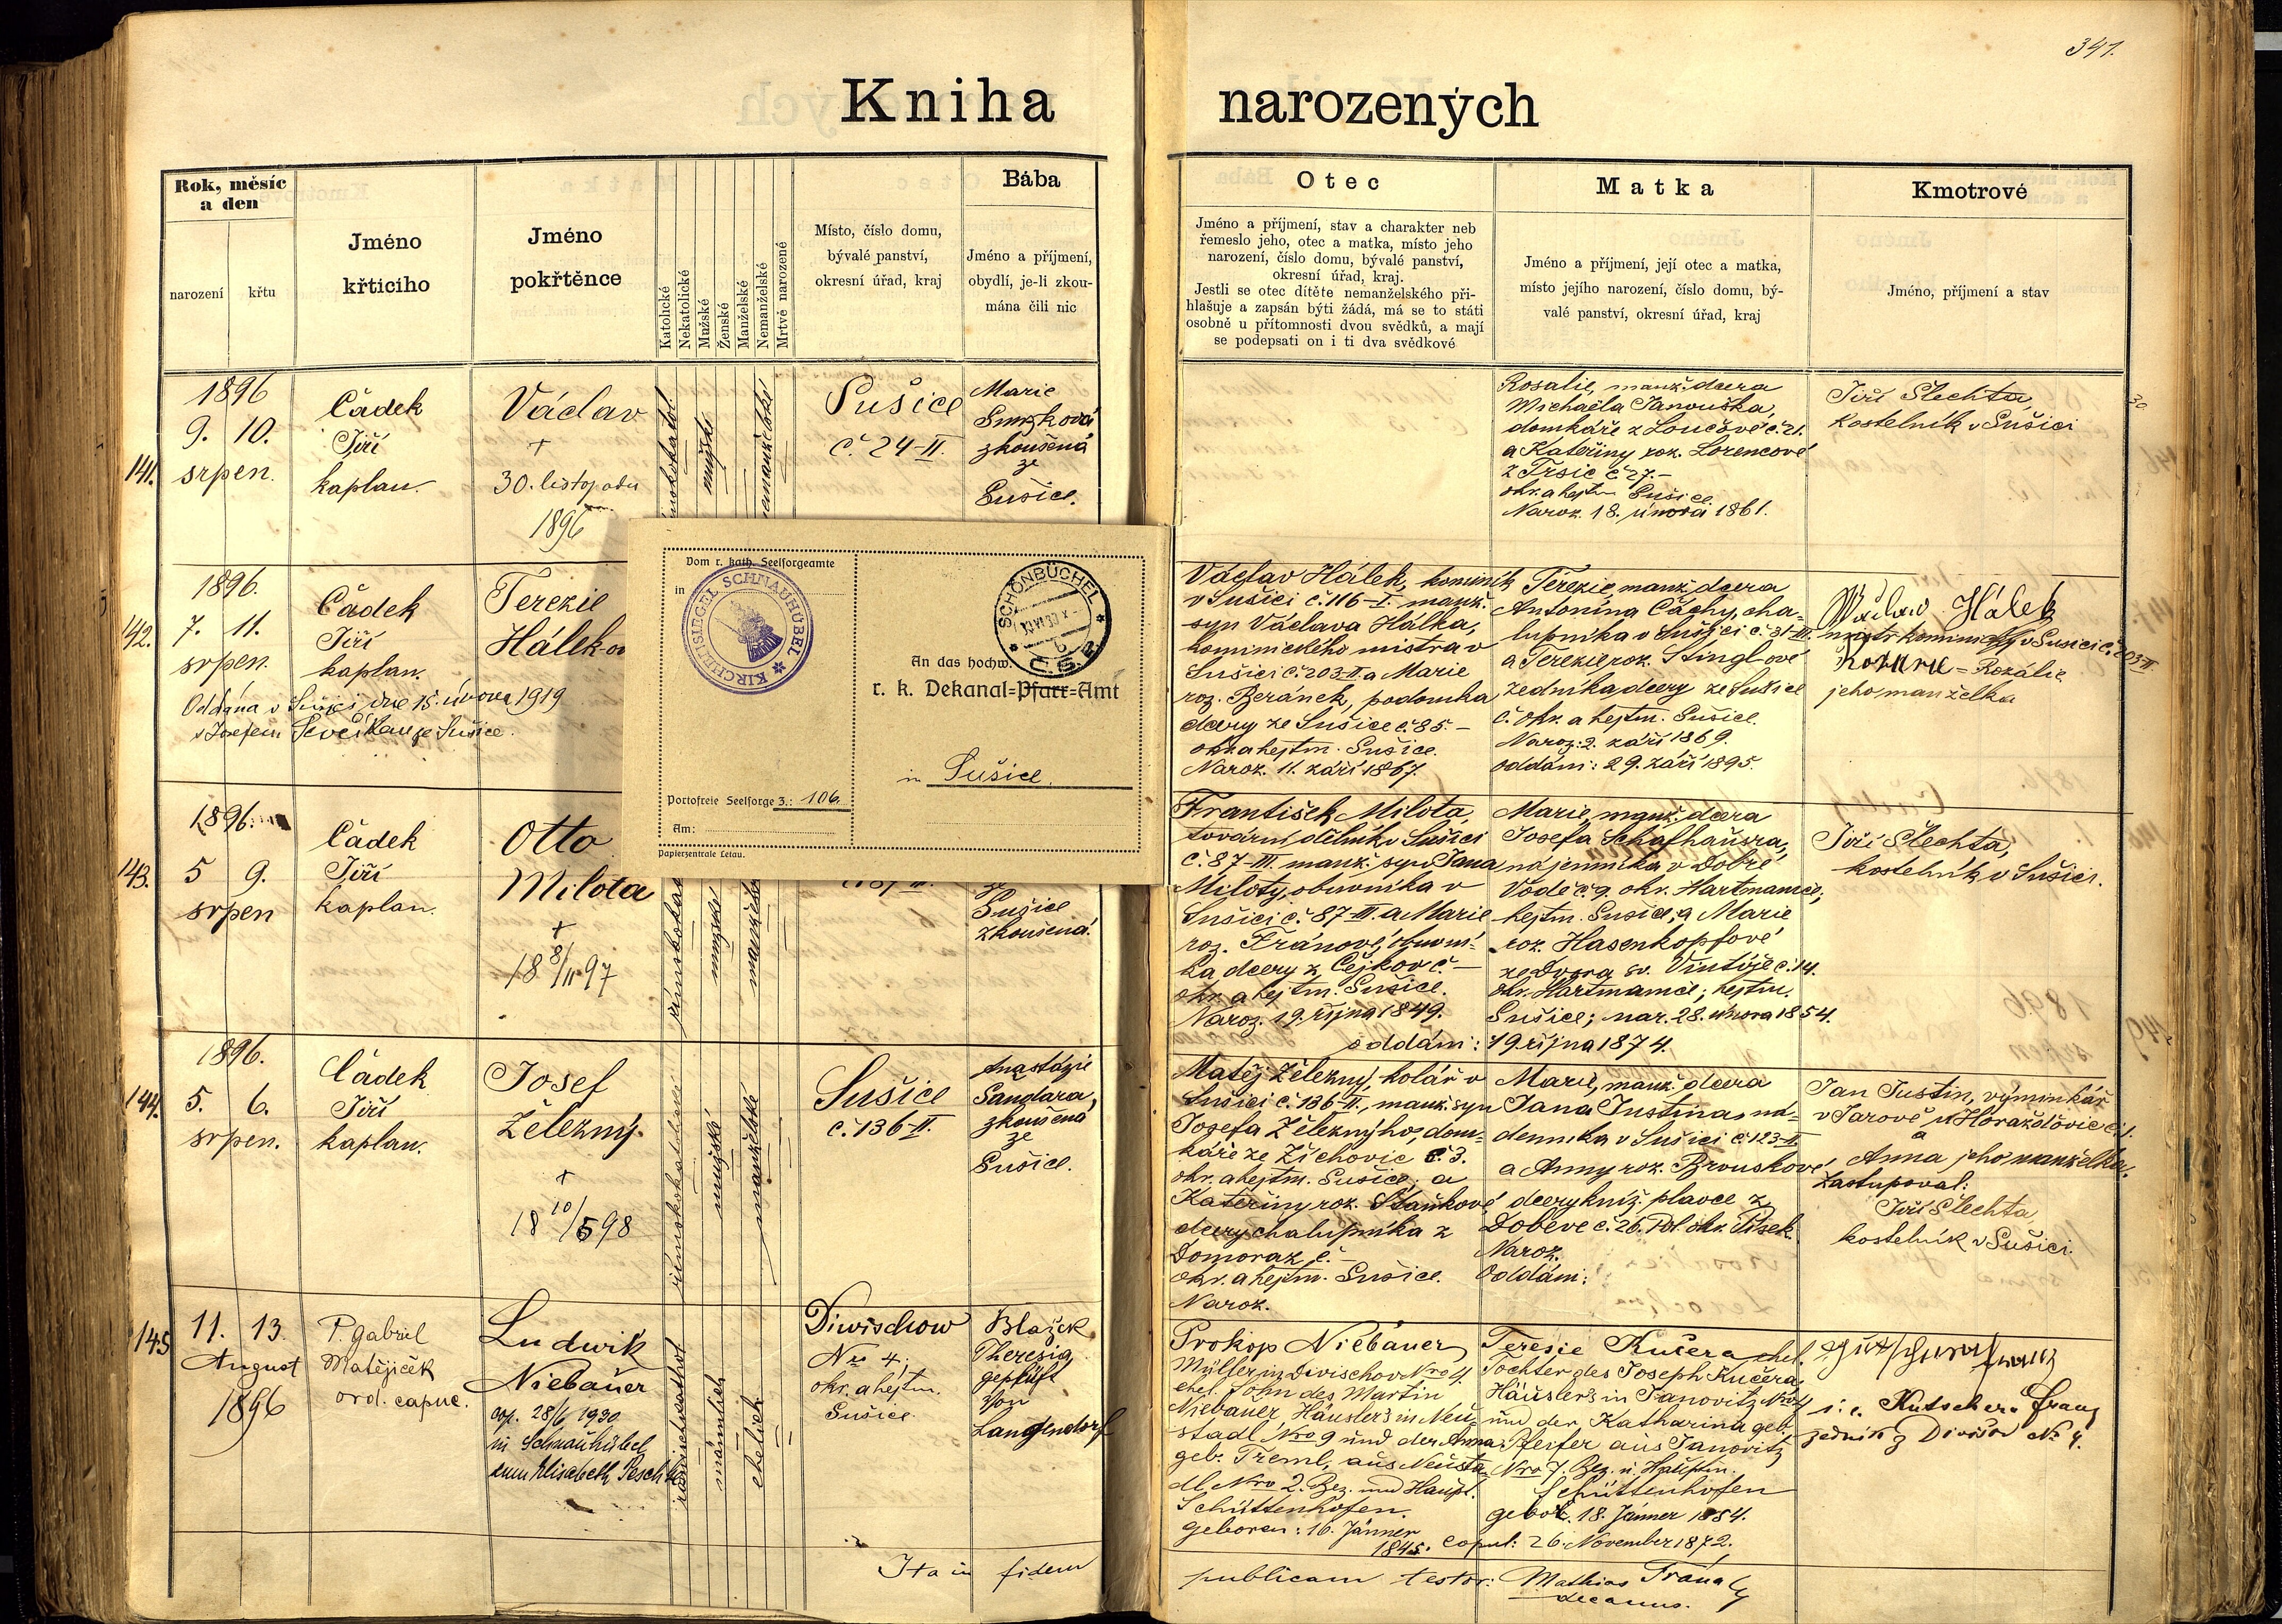 341.
Kniha narozených
Rok, měsíc
a den
narození
křtu
Jméno
křticího
Jméno
pokřtěnce
Katolické
Nekatolické
Mužské
Ženské
Manželské
Nemanželské
Mrtvě narozené
Místo, číslo domu,
bývalé panství,
okresní úřad, kraj
Bába
Jméno a příjmení,
obydlí, je-li zkou-
mána čili nic
Otec
Jméno a příjmení, stav a charakter neb
řemeslo jeho, otec a matka, místo jeho
narození, číslo domu, bývalé panství,
okresní úřad, kraj.
Jestli se otec dítěte nemanželského při-
hlašuje a zapsán býti žádá, má se to státi
osobně u přítomnosti dvou svědků, a mají
se podepsati on i ti dva svědkové
Matka
Jméno a příjmení, její otec a matka,
místo jejího narození, číslo domu, bý-
valé panství, okresní úřad, kraj
Kmotrové
Jméno, příjmení a stav
141.
1896
9. 10.
srpen.
Čádek
Jiří
kaplan.
Václav
+
30. listopadu
1896
mužské
Sušice
č. 24-II.
Marie
zkoušená
ze
Sušice.
Rosalie, manž. dcera
Michaela Janouška,
domkáře z Loučové č. 21.
a Kateřiny roz. Lorencové
z Trsic č. 27.-
okr. a hejtm. Sušice.
Naroz. 18. února 1861.
Jiří Šlechta,
kostelník v Sušici
142.
1896.
7. 11.
srpen.
Čádek
Jiří
kaplan.
Terezie
Hálek-ov
Oddána v Sušici dne 15. února 1919
s Josefem Ševčíkem ze Sušice.
Václav Hálek, kominík
v Sušici č. 116-I. manž.
syn Václava Hálka,
kominického mistra v
Sušici č. 203-II. a Marie
roz. Beránek, podomka
dcery ze Sušice č. 85.-
okr. a hejtm. Sušice.
Naroz. 11. září 1867.
Terezie, manž. dcera
Antonína Čáchy, cha-
lupníka v Sušici č. 31-III.
a Terezie, roz. Stingl-ové
zedníka dcery ze Sušice
č. okr. a hejtm. Sušice.
Naroz: 2. září 1869.
oddáni: 29. září 1895.
Václav Hálek
mistr kominický v Sušici č. 203 II.
Rozálie
jeho manželka
143.
1896.
5 9.
srpen
Čádek
Jiří
kaplan.
Otto
Milota
+
18 8/11 97
mužské
Sušice
zkoušená.
František Milota,
tovární dělník v Sušici
č. 87-III. manž. syn Jana
Miloty, obuvníka v
Sušici č. 87-III. a Marie
roz. Fránové, obuvní-
ka dcery z Čejkov č. -
okr. a hejtm. Sušice.
Naroz. 19. října 1849.
Marie, manž. dcera
Josefa Schafhausra,
nájemníka v Dobré
Vodě č. 9, okr. Hartmanice,
hejtm. Sušice, a Marie
roz. Hasenkopfové
ze Dvora sv. Vintíře č. 14.
okr. Hartmanice; hejtm.
Sušice; nar. 28. února 1854.
oddáni: 19. října 1874.
Jiří Šlechta,
kostelník v Sušici.
144.
1896.
5. 6.
srpen.
Čádek
Jiří
kaplan.
Josef
Železný.
+
18 10/5 98
římskokatolické
mužské
manželské
Sušice
č. 136-II.
Anastázie
Sandara,
zkoušená
ze
Sušice.
Matěj Železný, kolář v
Sušici č. 136-II., manž. syn
Josefa Železnýho, dom-
káře ze Žichovic č. 3.
okr. a hejtm. Sušice, a
Kateřiny roz. Staňkové
dcery chalupníka z
Domoraz č. -
okr. a hejtm. Sušice.
Naroz.
Marie, manž. dcera
Jana Justina, ná-
denníka v Sušici č. 123-II.
a Anny roz. Brouskové,
dcery kníž. plavce z
Dobeve č. 26. Pol. okr. Písek.
Naroz.
Oddáni:
Jan Justin, výminkář
v Jarově u Horažďovic č. 1.
a
Anna jeho manželka.
Zastupoval:
Jiří Šlechta
kostelník v Sušici.
145
11. 13.
August
1896
P. Gabriel
Matějíček
ord. capuc.
Ludwik
Niebauer
cop. 28/6 1930
in Schnauhübel
zum Elisabeth Peschke
männlich
ehelich
Diwischow
Nro 4.
okr. a hejtm.
Sušice.
Blažek
Theresia,
geprüft
von
Langendorf
Prokop Niebauer
Müller in Divischov Nro 4.
ehel. Sohn des Martin
Niebauer Häuslers in Neu-
stadl Nro 9 und der Anna
geb. Treml, aus Neusta-
dl Nro 2. Bez. und Haupt.
Schüttenhofen.
geboren: 16. Jänner
1845.
Teresie Kučera ehel.
Tochter des Joseph Kučera,
Häuslers in Janovitz Nro 4
und der Katharina geb.
Pfeifer aus Janovitz
Nro 7. Bez. u. Hauptm.
Schüttenhofen
gebor. 18. Jänner 1854.
copul: 26. November 1872.
i. e. Kutschera Franz
zedník z Divišov No 4.
Ita in fidem
publicam testor: Mathias Frána
decanus.
Vom r. kath. Seelsorgeamte
in
KIRCHENSIEGEL SCHNAUHÜBEL
Portofreie Seelsorge Z.: 106.
Am:
Papierzentrale Leiau.
SCHÖNBÜCHEL
Č.S.R.
An das hochw.
r. k. Dekanal=Pfarr=Amt
in Sušice.